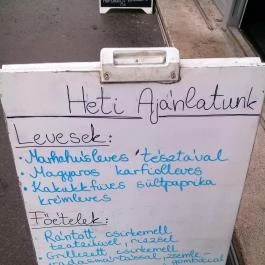 Heti Ajánlatunk
Levesek:
• Marhahúsleves tésztával
• Magyaros karfiolleves
• Kakukkfüves sültpaprika
krémleves
Főételek:
• Rántott csirkemell
tzatzikivel, rizssel
• Grillezett csirkemell
zsemle-
gombával